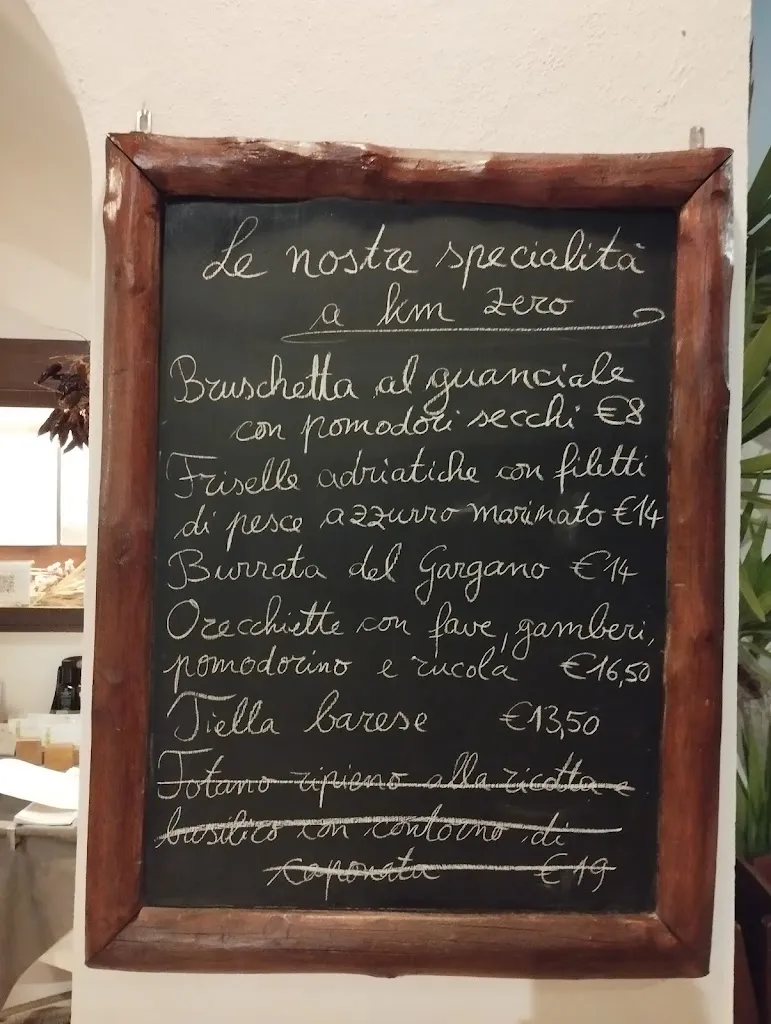 Le nostre specialità
a km zero
Bruschetta al guanciale
con pomodori secchi €8
Friselle adriatiche con filetti
di pesce azzurro marinato €14
Burrata del Gargano €14
Orecchiette con fave, gamberi,
pomodorino e rucola €16,50
Tiella barese €13,50
Totano ripieno alla ricotta e
basilico con contorno di
caponata €19